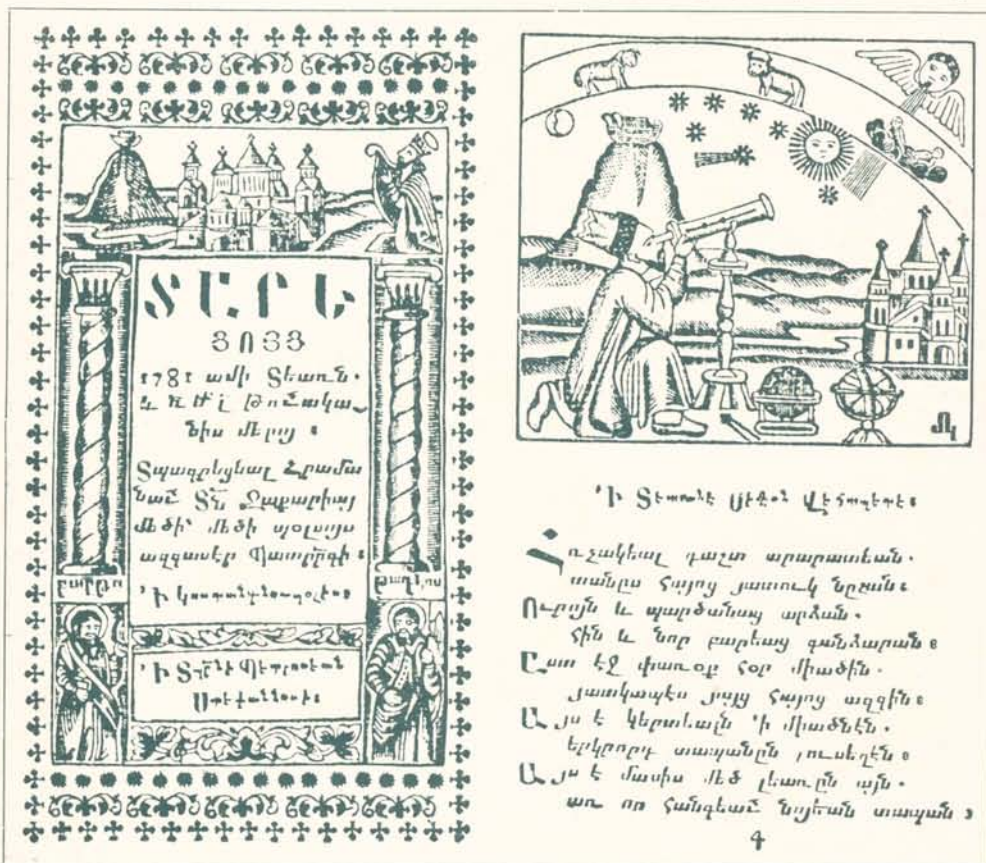 ՏԱՐԵ
ՅՈՅՑ
1781 ամի Տեառն.
և ՌՄԼ Թուակա
նիս մերոյ ։
Տպագրեցեալ Հրամա
նաւ Տն Զաքարիայ
մեծի՝ մեծի պօլսոյս
ազգասէր Պատրրգի ։
՚Ի կոստանդնուպօլիս։
բարթո
թադէոս
՚Ի Տպրնի Պետրոսեան
Ստեփաննոսի։
՚Ի Տեառնէ Սիմէօն Վեհապետէ։
Հռչակեալ դաշտ արարատեան.
տանըս հայոց յատուկ նըշան։
Ուրոյն և պարծանաց արձան.
հին և նոր բարեաց գանձարան։
Ըստ էջ փառօք հօր միածին.
յատկապէս յայց հայոց ազգին։
Այս է կերտեալն ՚ի միածնէն.
երկրորդ տապանըն յուսեղէն։
Այս է մասիս մեծ լեառըն այն.
առ որ հանգեաւ նոյեան տապան ։
4